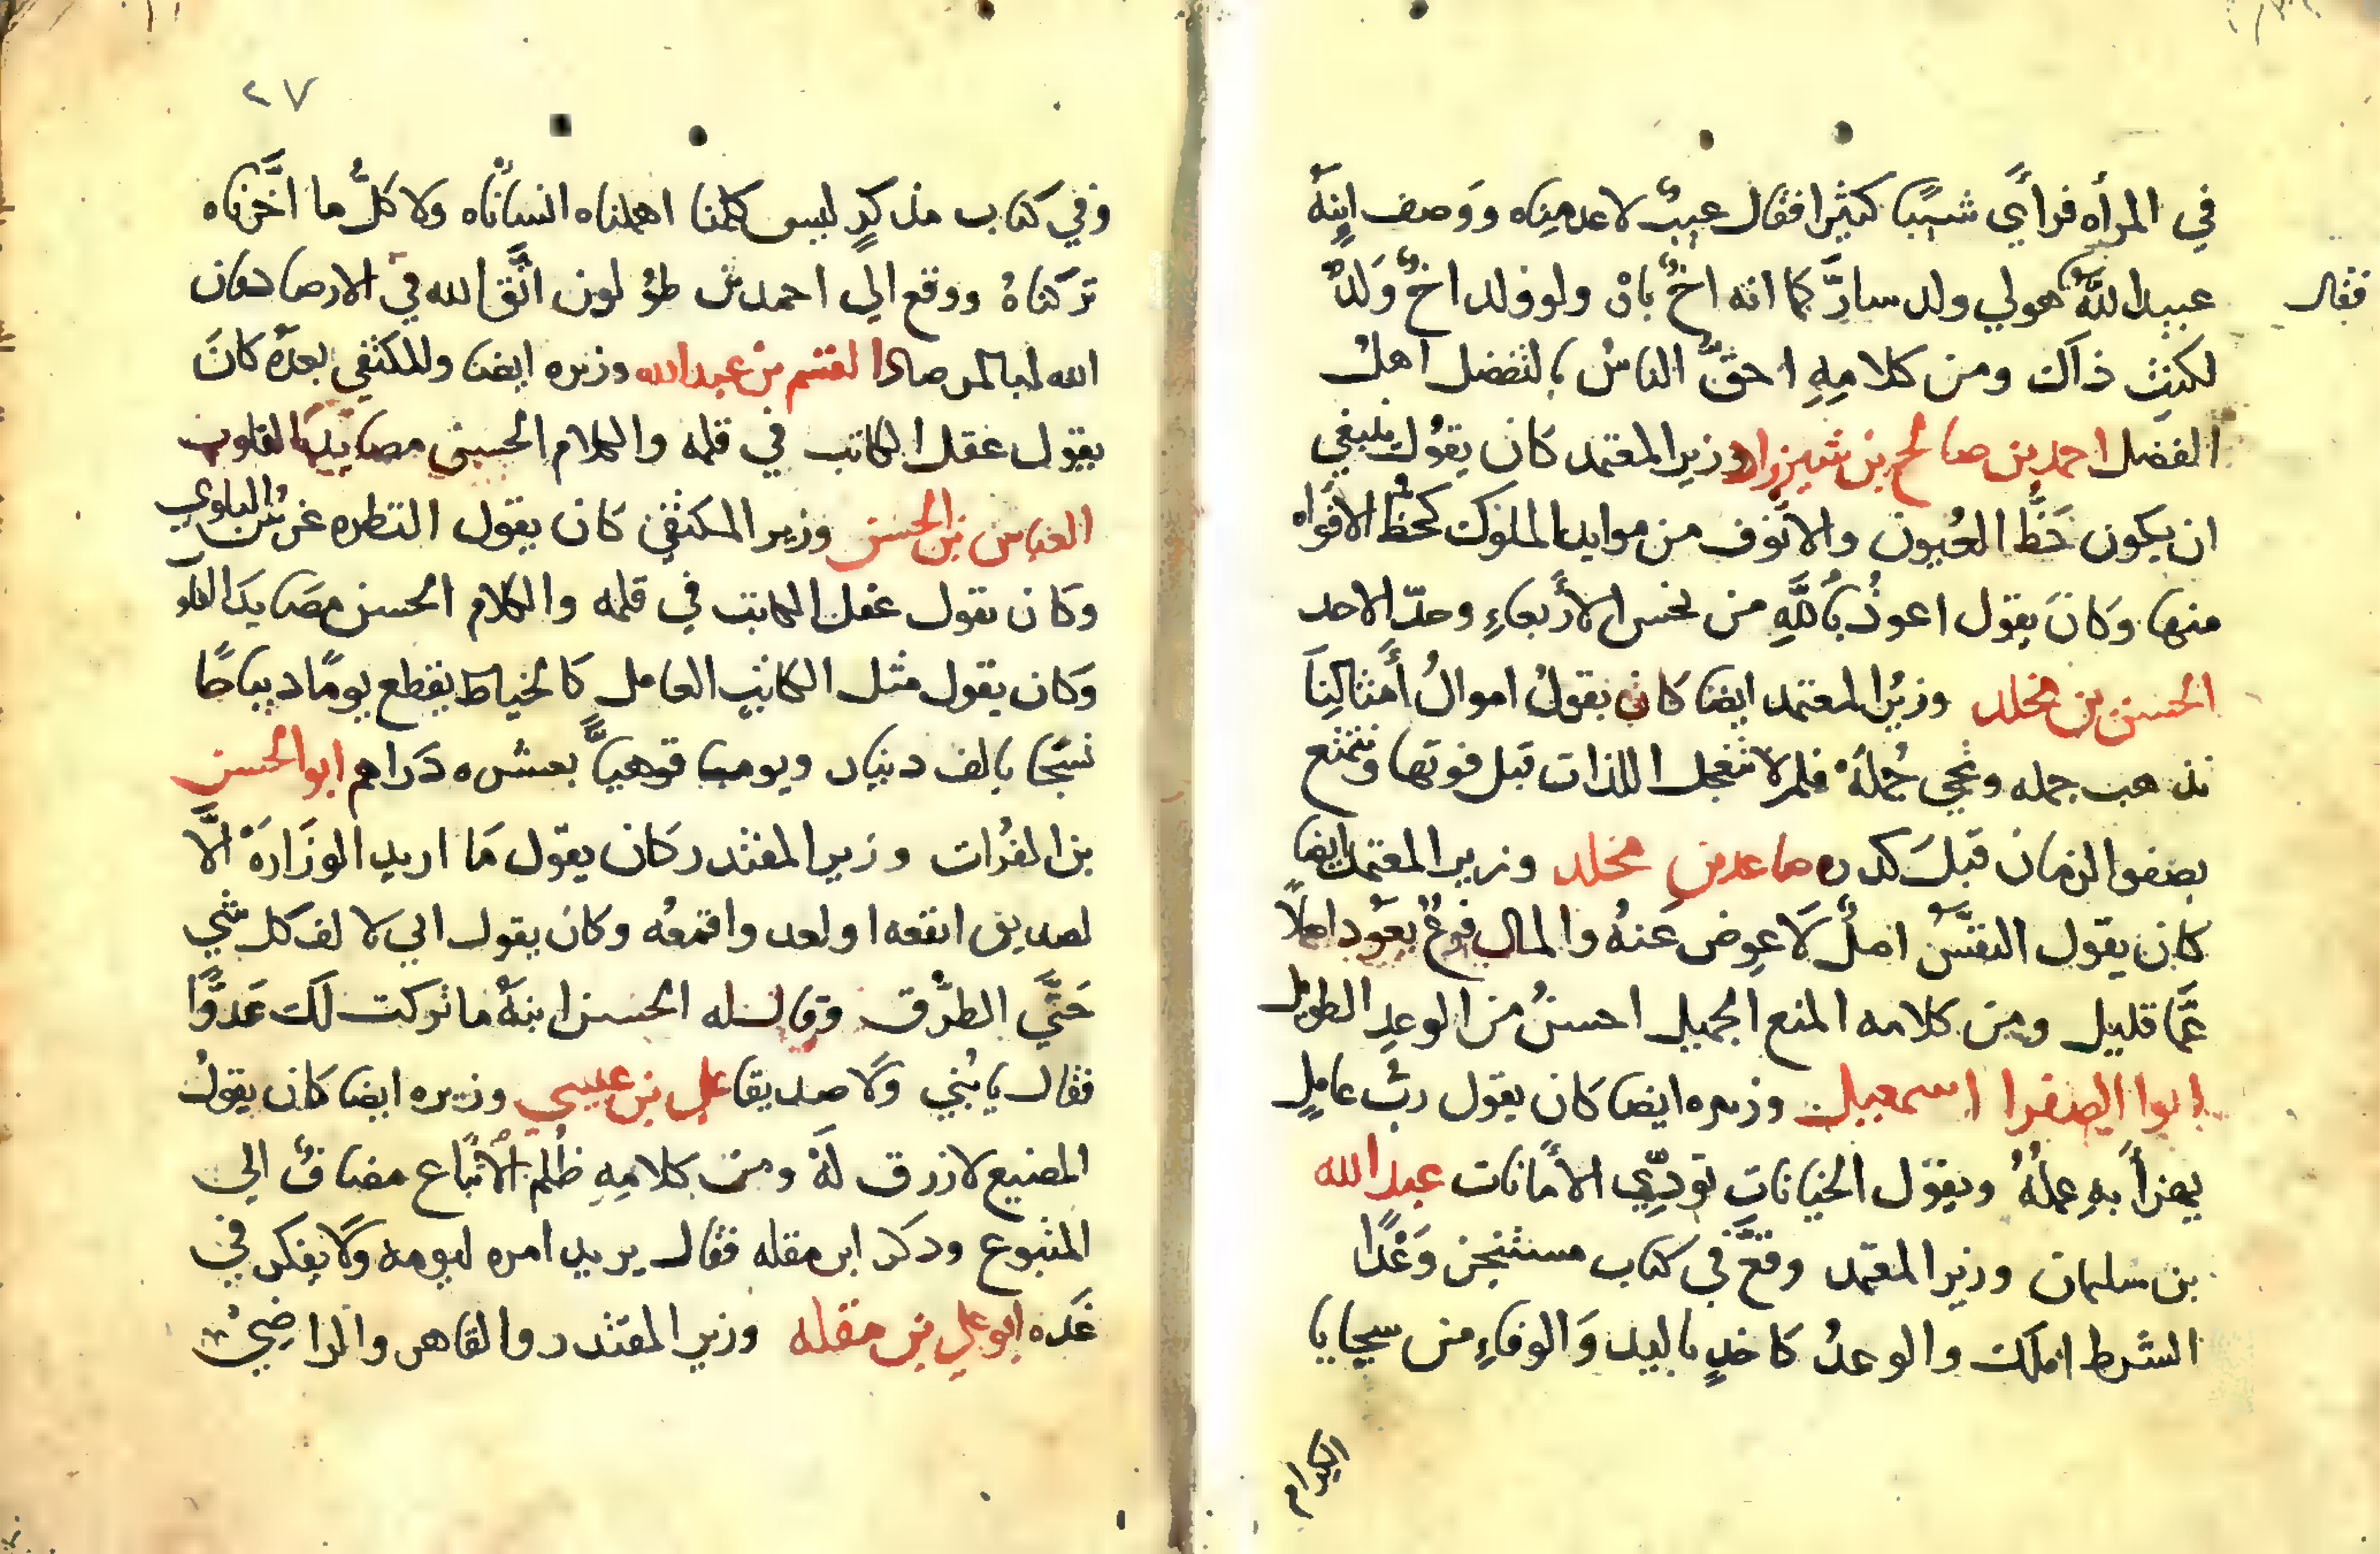 في المرأه فرأي شيبًا كثيرا فقال عيبٌ لا عدمناه ووصف ابنهُ
فقال
عبيد اللَّه هو لي ولد سارَّ كما انه اخٌ بارٌ ولو ولد اخٌ وَلدٌ
لكنت ذاك ومن كلامِهِ احقُّ الناسُ بالتفضل اهلُ
الفضل احمد بن صالح بن شيرزاد وزير المعتمد كان يقولُ ينبغي
ان يكون حَظَّ العُيون والانوف من موايد الملوك كحظ الافواه
منها وكانَ يقول اعوذُ باللَّهِ من نحس الأربعاءِ وحدّ الاحد
الحسن بن مخلد وزيرُ المعتمد ايضا كان يقولُ اموالُ أمثالِنا
تذهب جمله وتجي جُملةً فلم لا نتعجل اللذات قبل فوتها ونتمتع
بصفوا الزمان قبلَ كدره صاعد بن مخلد وزير المعتمد ايضا
كان يقول النفسُ اصلٌ لَا عِوض عَنهُ والمال فرعٌ يعود اصلًا
عمَّا قليل ومن كلامه المنع الجميل احسنُ من الوعدِ الطويل
ابوا الصقرا اسمعيل وزيره ايضا كان يقول ربُّ عاملٍ
يهزأ بهِ عملُهُ ويقول الخيانات تودّي الأمانات عبد الله
بن سليمان وزير المعتمد وقعَّ في كتاب مستنجز وَعْدًا
الشرط املك والوعدُ كاخذٍ باليد وَالوفاءِ من سجايا
الكرام
٢٧
وفي كتاب مذكرٍ ليس كلمنا اهملناه انسانًاه ولا كلُّ ما اخَّرناه
تركناهُ ووقع الي احمد بن طولون اتَّق الله في الارصاد فان
الله لبالمرصاد القسم بن عبد الله وزيره ايضا وللمكتفي بعدَه كانَ
يقول عقل الكاتب في قلمه والكلام الحسن مصايد القلوب
العباس بن الحسن وزير المكتفي كان يقول
وكان يقول عقل الكاتب في قلمه والكلام الحسن مصايد القلو
وكان يقول مثل الكاتبِ العامل كالخياط يقطع يومًا ديباجًا
نسجًا بالف دينار ويوما قوهيًّا بعشره دَراهم ابوالحسن
بن الفُرات وزير المقتدر كان يقول مَا اريد الوزَارَةْ الَّا
لصديق انفعه اولعد واقمعُه وكان يقول الف كل شي
حَتَّي الطرق وقال له الحسن ابنهُ ما تركت لَك عَدوًّا
فقال يا بُني وَلا صديقا علي بن عيسي وزيره ايضا كان يقولُ
المضيع لا رزق لهُ ومن كلامِهِ ظُلم الأتباع مضاف الي
المتبوع وذكر ابن مقله فقال يريد امره ليومه وَلا يفكر في
غَده ابوعلي بن مقله وزير المقتدر والقاهر والراضيْ